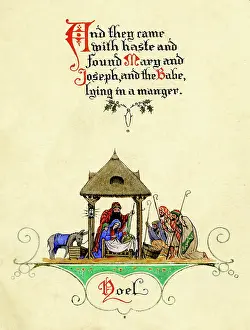 And they came
with haste and
found Mary and
Joseph, and the Babe,
lying in a manger.
Noel